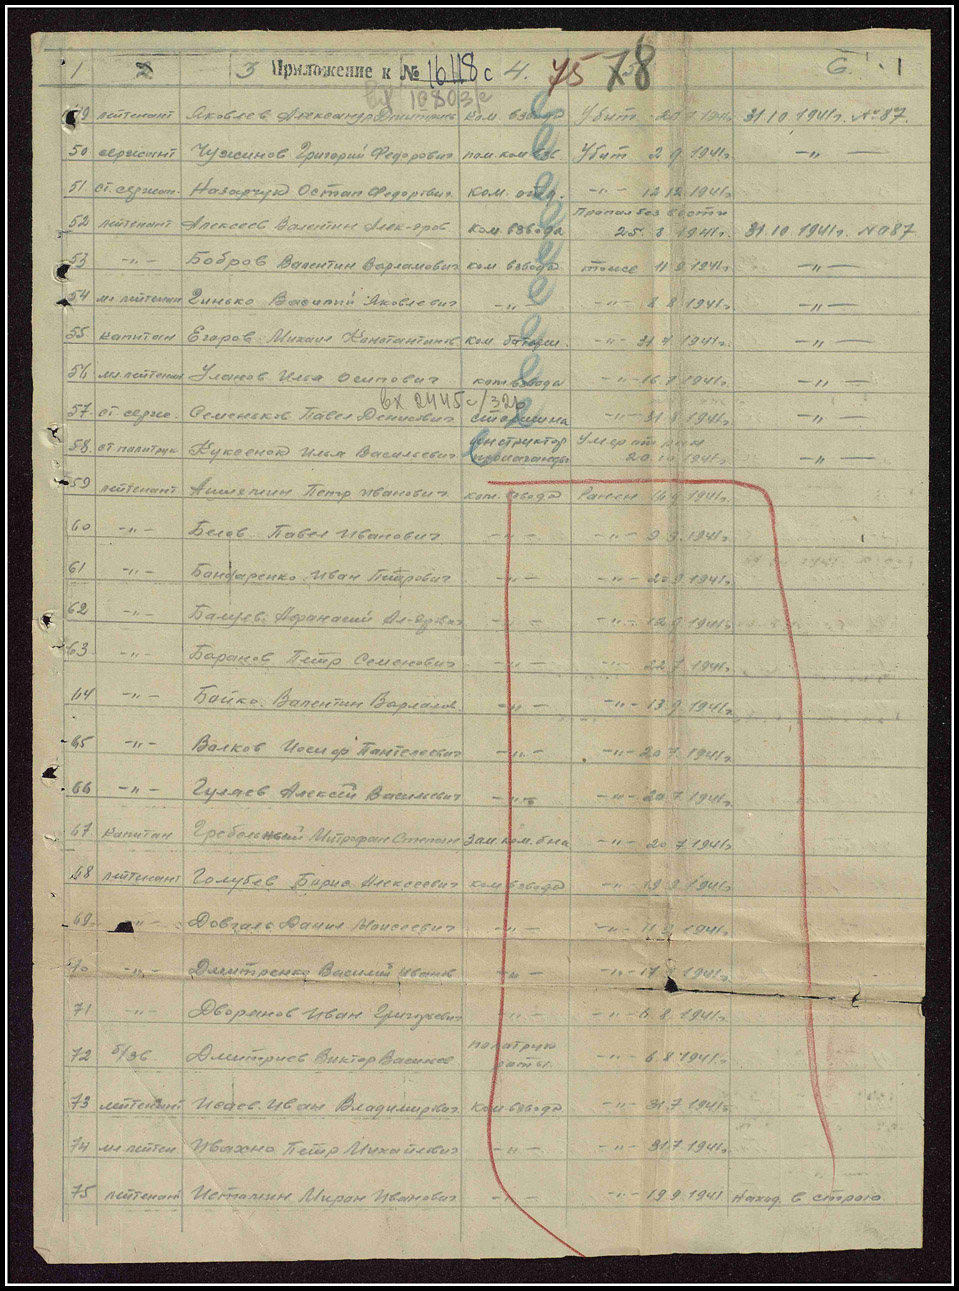 1 2 3 Приложение к № 16118 с 4. 75 78 6.
вх 10803с
49 лейтенант Яковлев Александр Дмитриев ком. взвода Убит 1941г. 31.10.1941г. №87.
50 сержант Чужинов Григорий Федорович пом. ком взв. Убит 2.9.1941г. -"-
51. ст. сержан. Назарчук Остап Федорович ком. отд. -"- 12.12.1941г.
Пропал без вести
52 лейтенант Алексеев Валентин Алек-дров ком. взвода 25. 8 1941г. 31.10.1941г. №87
53 -"- Бобров Валентин Варламович ком взвода тоже 11.9.1941г. -"-
54 мл. лейтенан Гинько Василий Яковлевич -"- -"- 8.8.1941г. -"-
55 капитан Егоров Михаил Константинов ком. батареи. -"- 31.7.1941г. -"-
56 мл. лейтенан Уланов Илья Осипович ком. взвода -"- 16.7.1941г. -"-
вх 2445с/32г
57. ст. серж. Семеньков Павел Денисович старшина -"- 31.8.1941г. -"-
инструктор Умер от ран
58. ст. политрук Куксенок Илья Васильевич пропаганды 20.10.1941г. -"-
59 лейтенант Ашихмин Петр Иванович. ком. взвода Ранен 1941г.
60 -"- Белов Павел Иванович -"- -"- 9.9.1941г.
61 -"- Бандаренко Иван Петрович -"- -"- 20.9.1941г.
62 -"- Балуев Афанасий Ал-дрович -"- -"- 12. 1941г.
63. -"- Баранов Петр Семенович -"- -"- 22.7.1941г.
64 -"- Бойко Валентин Варлалов. -"- -"- 13.9.1941г.
65 -"- Волков Иосиф Пантелеевич -"- -"- 20.7.1941г.
66 -"- Гуляев Алексей Васильевич -"- -"- 20.7.1941г.
67 капитан Гребельный Митрофан Степан Зам. ком. б-на -"- 20.7.1941г.
68 лейтенант Голубев Борис Алексеевич ком. взвода -"- 19.9.1941г.
69. -"- Довгаль Данил Моисеевич -"- -"- 11. 1941г.
70 -"- Дмитренко Василий Иванов -"- -"- 17. 1941г.
71 -"- Дворянов Иван Григорьевич -"- -"- 6.8.1941г.
72 б/зв. Дмитриев Виктор Васильев политрук роты -"- 6.8.1941г.
73 лейтенант Исаев Иван Владимирович ком. взвода -"- 31.7.1941г.
74 мл лейтен. Ивахно Петр Михайлович -"- -"- 31.7.1941г.
75 лейтенант Истомин Мирон Иванович -"- -"- 19.9.1941 наход. в строю